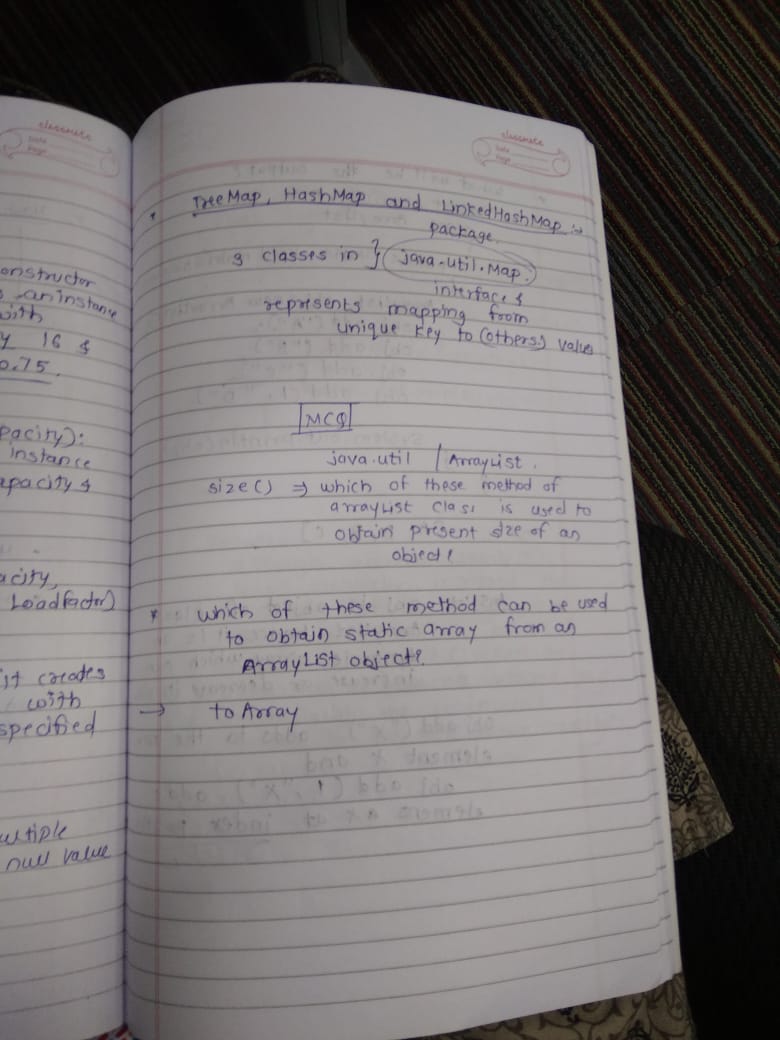 classmate
Date
Page
onstructor
an instance
with
16 &
0.75.
pacity):
instance
apacity &
acity,
Loadfactor)
ist creates
with
specified
ultiple
null value
classmate
Date
Page
TreeMap, HashMap and LinkedHashMap :-
package.
3 classes in } java.util.Map.
interface &
represents mapping from
unique key to (others) value
MCQ
java.util / ArrayList.
size() => which of these method of
arrayList class is used to
obtain present size of an
object?
* which of these method can be used
to obtain static array from an
ArrayList object?
→ to Array